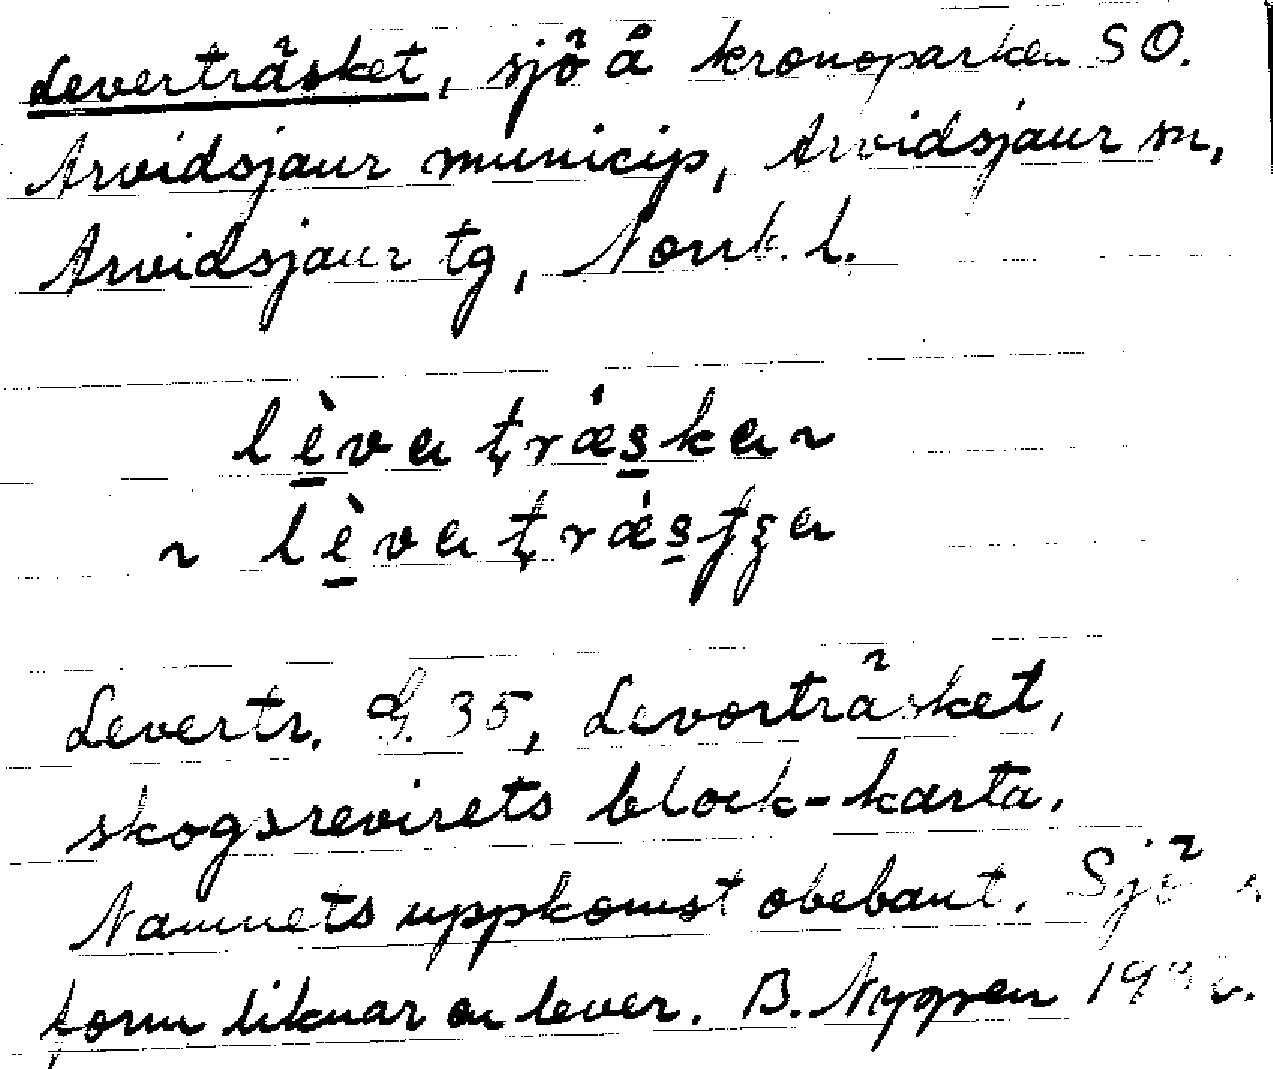 Leverträsket, sjö å kronoparken SO.
Arvidsjaur municip, Arvidsjaur sn,
Arvidsjaur tg, Norrb. l.
lèva træ̀ska ~
~ lèva træ̀stʃa
Levertr. G. 35, Levorträsket,
skogsrevirets block-karta.
Namnets uppkomst obekant. Sjöns
form liknar en lever. B. Nygren